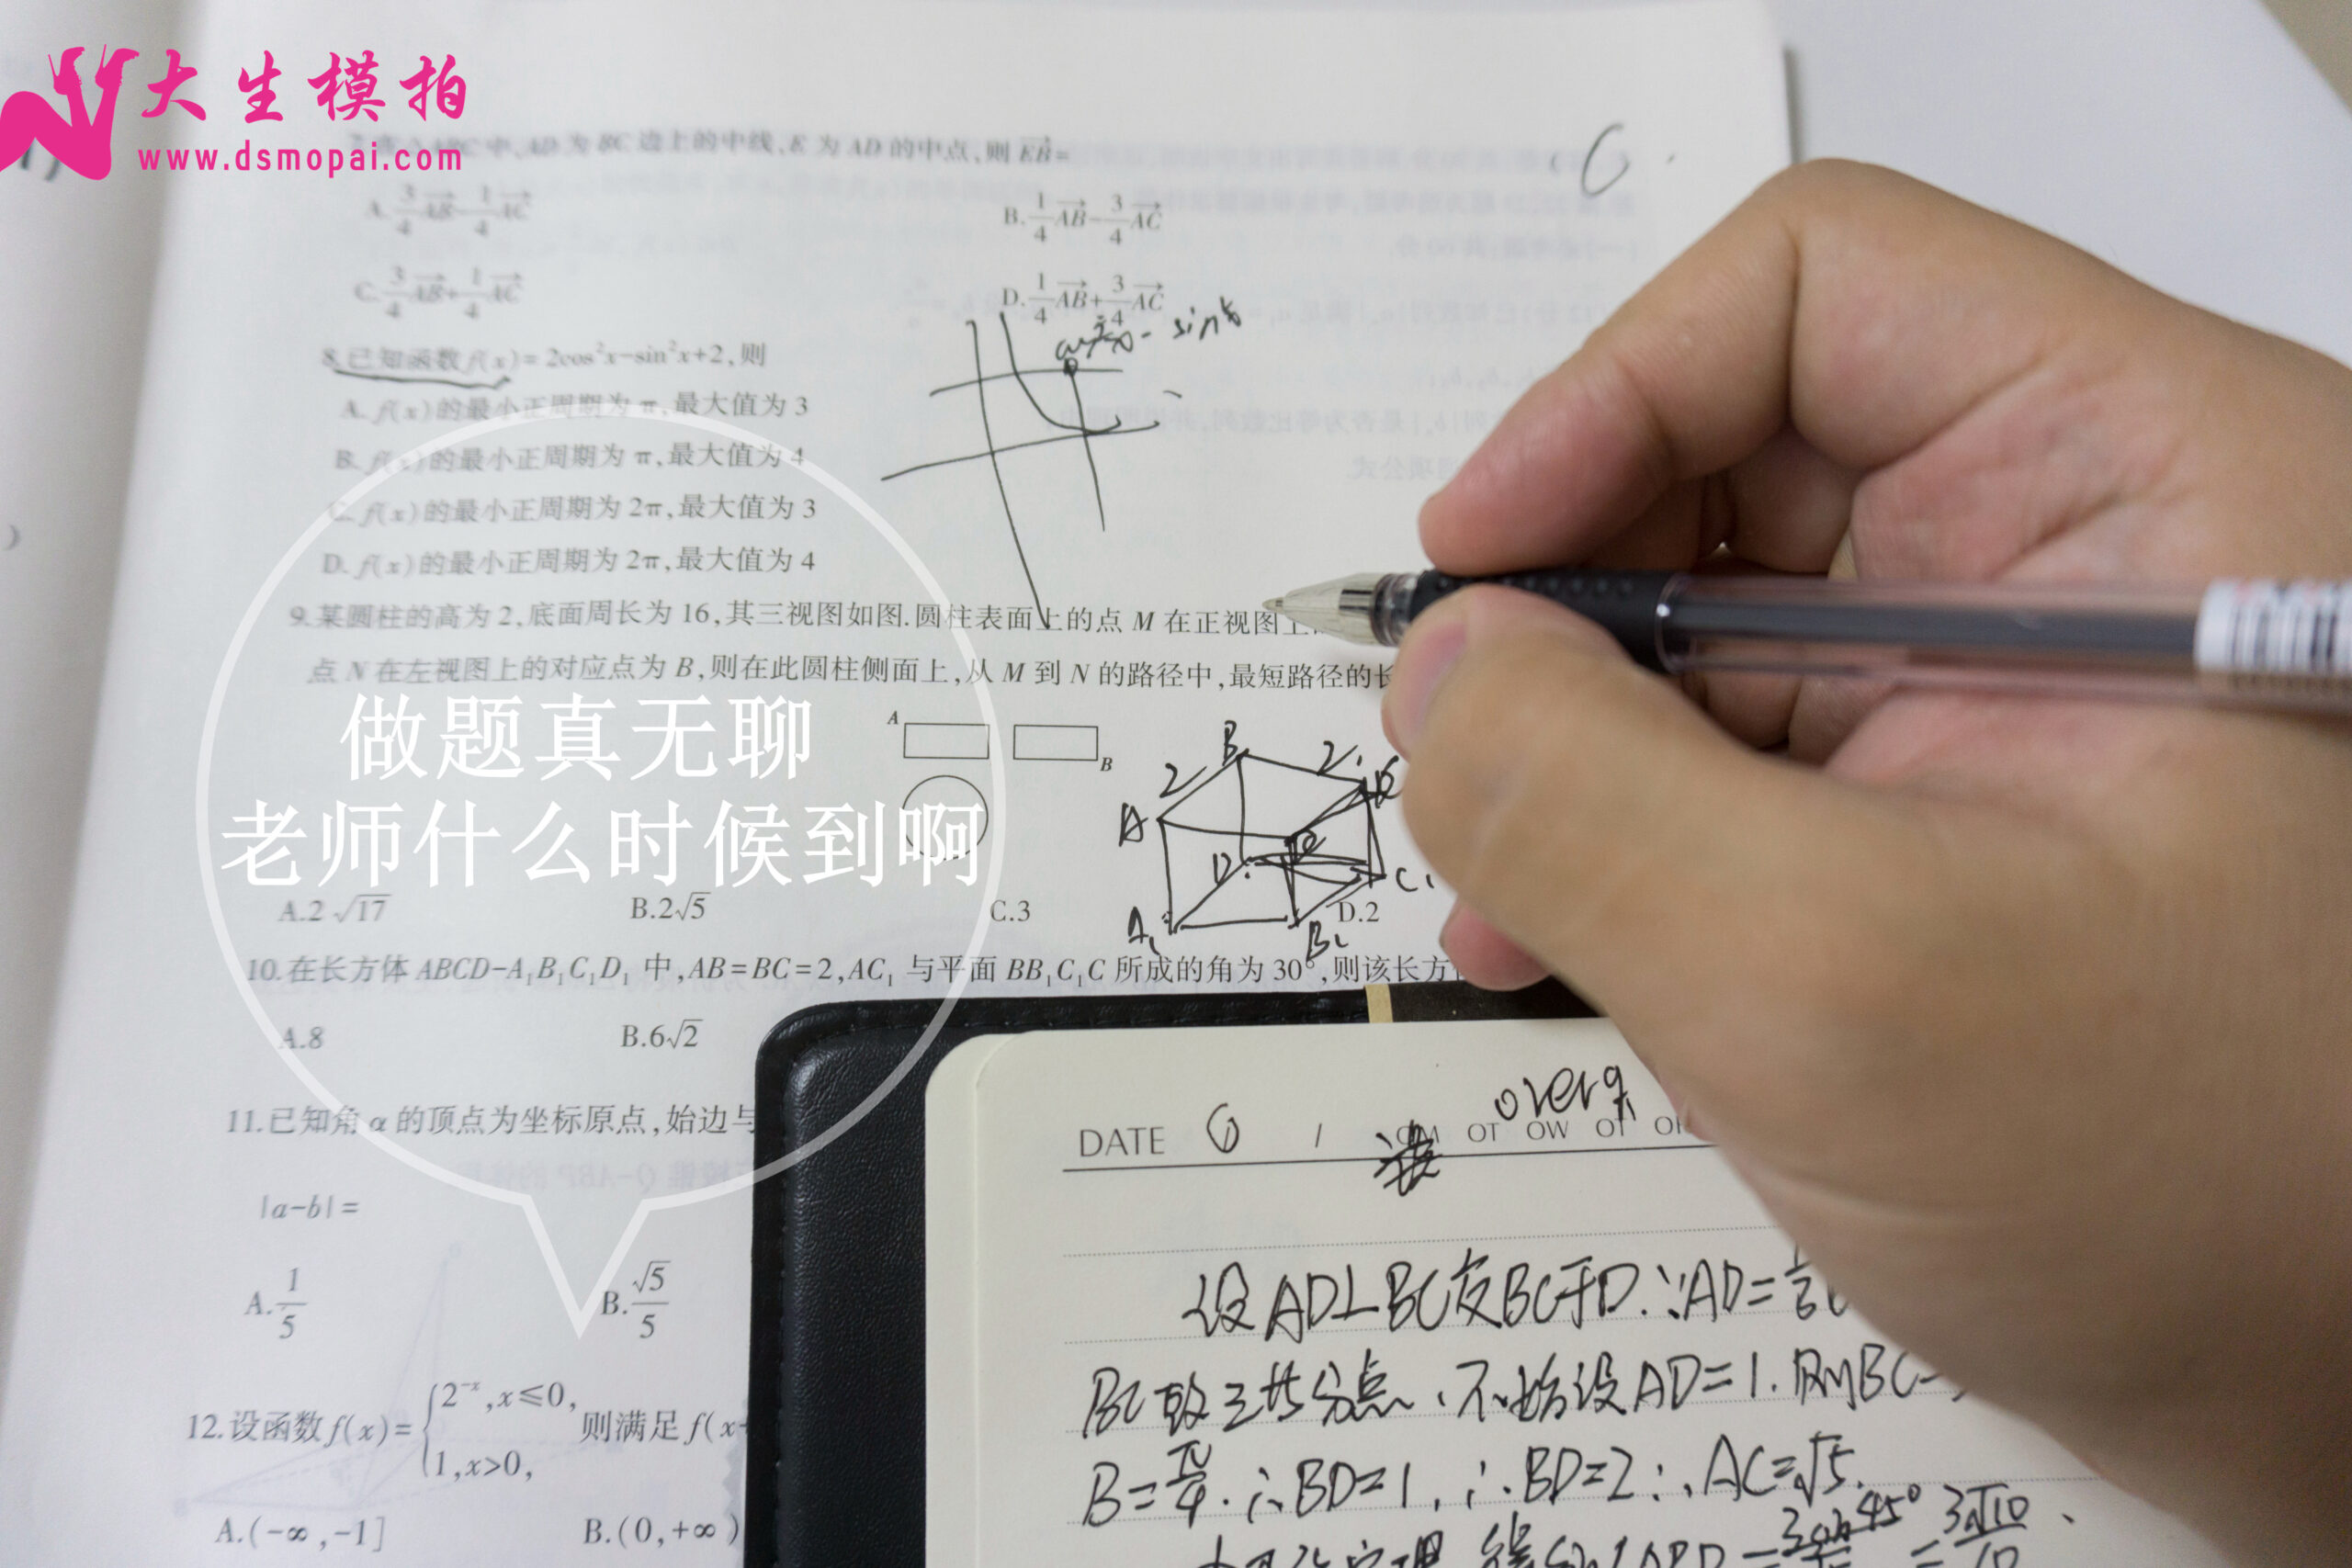 大生模拍
www.dsmopai.com
中,AD 为 BC 边上的中线,E 为 AD 的中点,则 EB=
A. 3/4 AB - 1/4 AC
B. 1/4 AB - 3/4 AC
C. 3/4 AB + 1/4 AC
D. 1/4 AB + 3/4 AC
8.已知函数 f(x)=2cos²x-sin²x+2,则
A. f(x)的最小正周期为 π,最大值为 3
B. f(x)的最小正周期为 π,最大值为 4
C. f(x)的最小正周期为 2π,最大值为 3
D. f(x)的最小正周期为 2π,最大值为 4
9.某圆柱的高为 2,底面周长为 16,其三视图如图.圆柱表面上的点 M 在正视图上
点 N 在左视图上的对应点为 B,则在此圆柱侧面上,从 M 到 N 的路径中,最短路径的长
做题真无聊
老师什么时候到啊
A
B
B 2
2
A
D
C₁
A₁
B₁
A.2√17 B.2√5 C.3 D.2
10.在长方体 ABCD-A₁B₁C₁D₁ 中,AB=BC=2,AC₁ 与平面 BB₁C₁C 所成的角为 30°,则该长方
A.8 B.6√2
11.已知角 α 的顶点为坐标原点,始边与
|a-b|=
A. 1/5 B. √5/5
12.设函数 f(x)={2⁻ˣ,x≤0, 1,x>0, 则满足 f(x
A.(-∞,-1] B.(0,+∞)
DATE
设AD⊥BC交BC于D.∵AD=
BC 三 分点.不妨设AD=1.则BC
B=π/4.∴BD=1,∴BD=2∴AC=√5.
45° = 3√10/10